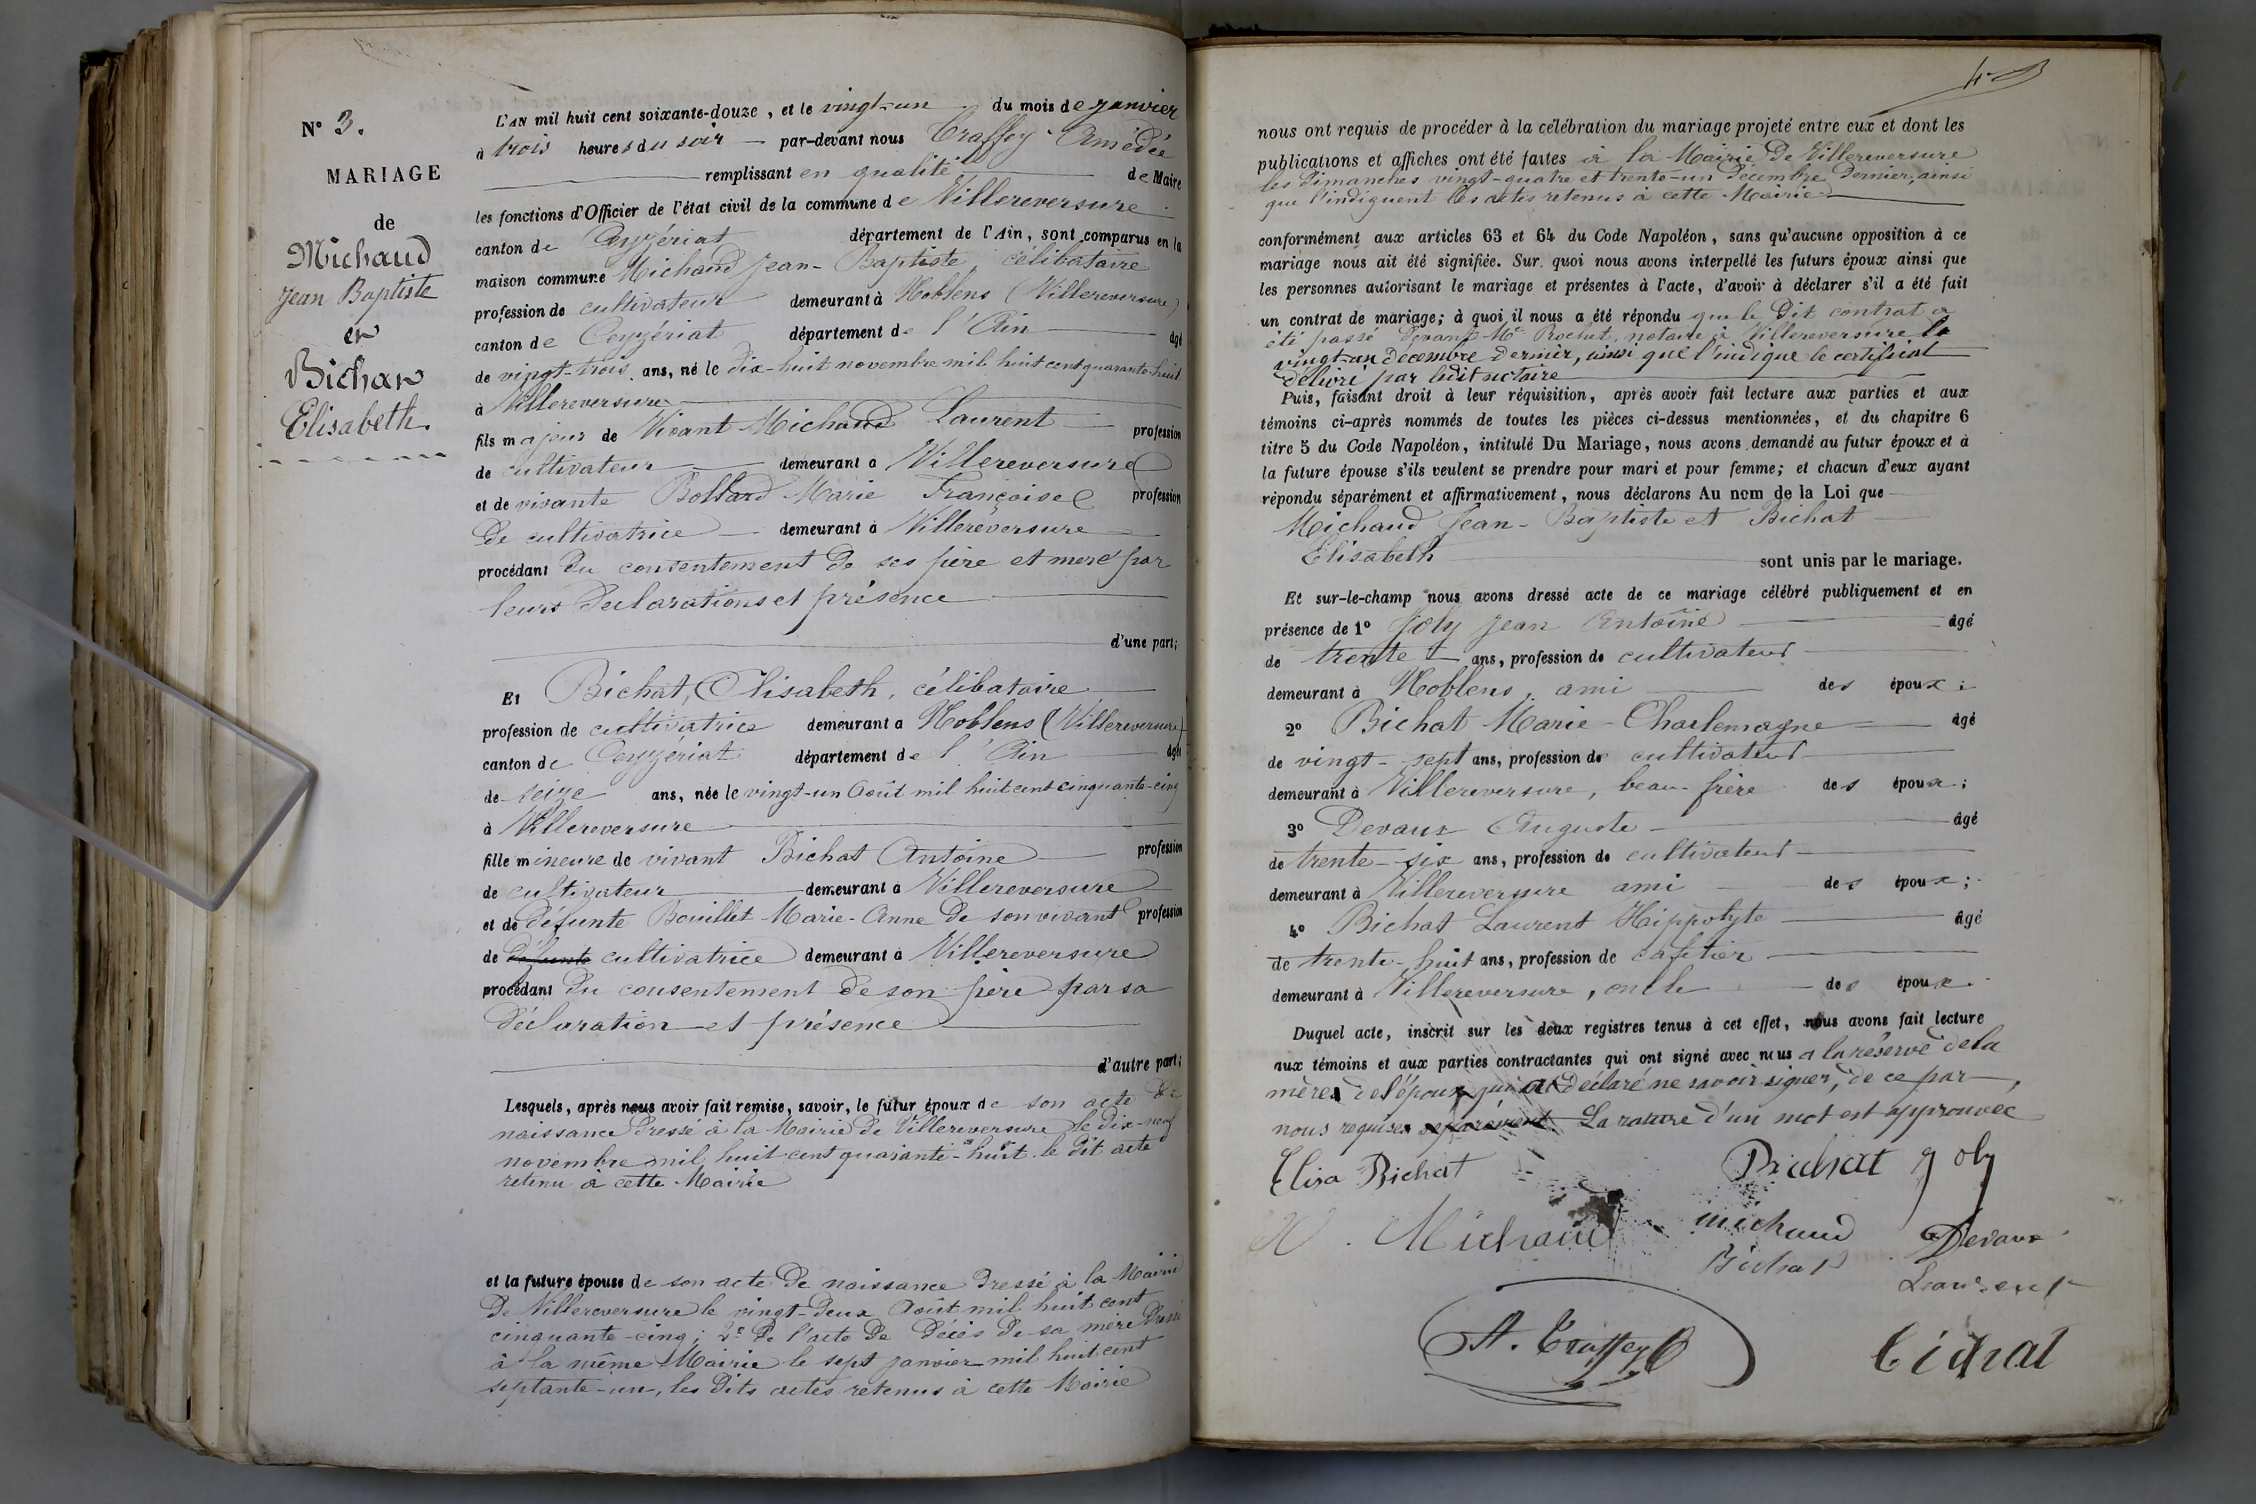 N° 3.
MARIAGE
de
Michaud
Jean Baptiste
et
Bichat
Elisabeth.
L'AN mil huit cent soixante-douze, et le vingt-un du mois de Janvier
à trois heures du soir par-devant nous Traffey Amédée
remplissant en qualité de Maire
les fonctions d'Officier de l'état civil de la commune de Villereversure
canton de Ceyzériat département de l'Ain, sont comparus en la
maison commune Michaud Jean-Baptiste célibataire
profession de cultivateur demeurant à Noblens (Villereversure)
canton de Ceyzériat département de l'Ain âgé
de vingt-trois ans, né le dix-huit novembre mil huit cent quarante-huit
à Villereversure
fils majeur de Vivant Michaud Laurent profession
de cultivateur demeurant à Villereversure
et de vivante Bollard Marie Françoise profession
de cultivatrice demeurant à Villereversure
procédant du consentement de ses père et mère par
leurs déclarations et présence
d'une part;
Et Bichat, Elisabeth, célibataire
profession de cultivatrice demeurant à Noblens (Villereversure)
canton de Ceyzériat département de l'Ain âgée
de seize ans, née le vingt-un Août mil huit cent cinquante-cinq
à Villereversure
fille mineure de vivant Bichat Antoine profession
de cultivateur demeurant à Villereversure
et de défunte Bouillet Marie-Anne de son vivant profession
de défunte cultivatrice demeurant à Villereversure
procédant du consentement de son père par sa
déclaration et présence
d'autre part;
Lesquels, après nous avoir fait remise, savoir, le futur époux de son acte de
naissance dressé à la Mairie de Villereversure le dix-neuf
novembre mil huit cent quarante-huit le dit acte
retenu à cette Mairie
et la future épouse de son acte de naissance dressé à la Mairie
de Villereversure le vingt-deux Août mil huit cent
cinquante-cinq; 2° de l'acte de décès de sa mère dressé
à la même Mairie le sept janvier mil huit cent
septante-un, les dits actes retenus à cette Mairie
nous ont requis de procéder à la célébration du mariage projeté entre eux et dont les
publications et affiches ont été faites à la Mairie de Villereversure
les dimanches vingt-quatre et trente-un décembre dernier, ainsi
que l'indiquent les actes retenus à cette Mairie
conformément aux articles 63 et 64 du Code Napoléon, sans qu'aucune opposition à ce
mariage nous ait été signifiée. Sur quoi nous avons interpellé les futurs époux ainsi que
les personnes autorisant le mariage et présentes à l'acte, d'avoir à déclarer s'il a été fait
un contrat de mariage; à quoi il nous a été répondu que le dit contrat a
été passé devant Me Rochet, notaire à Villereversure le
vingt-un décembre dernier, ainsi que l'indique le certificat
délivré par ledit notaire
Puis, faisant droit à leur réquisition, après avoir fait lecture aux parties et aux
témoins ci-après nommés de toutes les pièces ci-dessus mentionnées, et du chapitre 6
titre 5 du Code Napoléon, intitulé Du Mariage, nous avons demandé au futur époux et à
la future épouse s'ils veulent se prendre pour mari et pour femme; et chacun d'eux ayant
répondu séparément et affirmativement, nous déclarons Au nom de la Loi que
Michaud Jean-Baptiste et Bichat
Elisabeth sont unis par le mariage.
Et sur-le-champ nous avons dressé acte de ce mariage célébré publiquement et en
présence de 1° Joly Jean Antoine âgé
de trente ans, profession de cultivateur
demeurant à Noblens, ami des époux;
2° Bichat Marie-Charlemagne âgé
de vingt-sept ans, profession de cultivateur
demeurant à Villereversure, beau-frère des époux;
3° Devaux Auguste âgé
de trente-six ans, profession de cultivateur
demeurant à Villereversure ami des époux;
4° Bichat Laurent Hippolyte âgé
de trente-huit ans, profession de cafetier
demeurant à Villereversure, oncle des époux.
Duquel acte, inscrit sur les deux registres tenus à cet effet, nous avons fait lecture
aux témoins et aux parties contractantes qui ont signé avec nous à la réserve de la
mère de l'époux qui a déclaré ne savoir signer, de ce par
nous requise séparément La rature d'un mot est approuvée
Elisa Bichat Bichat Joly
Michaud michaud Devaux
Bichat Laurent
A. Traffey Bichat